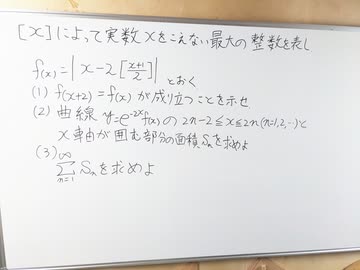 [x]によって実数xをこえない最大の整数を表し
f(x)=|x-2[(x+1)/2]| とおく
(1) f(x+2)=f(x)が成り立つことを示せ
(2) 曲線 y=e^{-2x}f(x)の 2n-2≦x≦2n(n=1,2,…)と
x軸が囲む部分の面積Snを求めよ
(3) ∞Σn=1 Snを求めよ